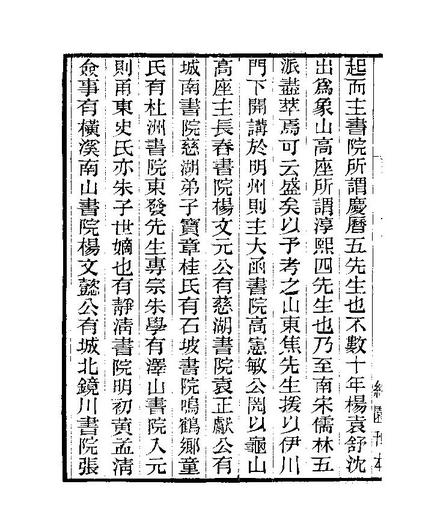 約園刊本
起而主書院所謂慶曆五先生也不數十年楊袁舒沈
出爲象山高座所謂淳熙四先生也乃至南宋儒林五
派盡萃焉可云盛矣以予考之山東焦先生援以伊川
門下開講於明州則主大函書院高憲敏公閌以龜山
高座主長春書院楊文元公有慈湖書院袁正獻公有
城南書院慈湖弟子寶章桂氏有石坡書院鳴鶴鄉童
氏有杜洲書院東發先生專宗朱學有澤山書院入元
則甬東史氏亦朱子世嫡也有靜清書院明初黃孟清
僉事有橫溪南山書院楊文懿公有城北鏡川書院張